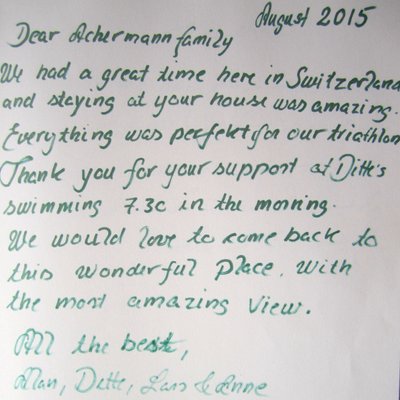 August 2015
Dear Achermann family
We had a great time here in Switzerland
and staying at your house was amazing.
Everything was perfekt for our triathlon
Thank you for your support at Ditte's
swimming 7.30 in the morning.
We would love to come back to
this wonderful place. With
the most amazing view.
All the best,
Ditte, Lars & Anne